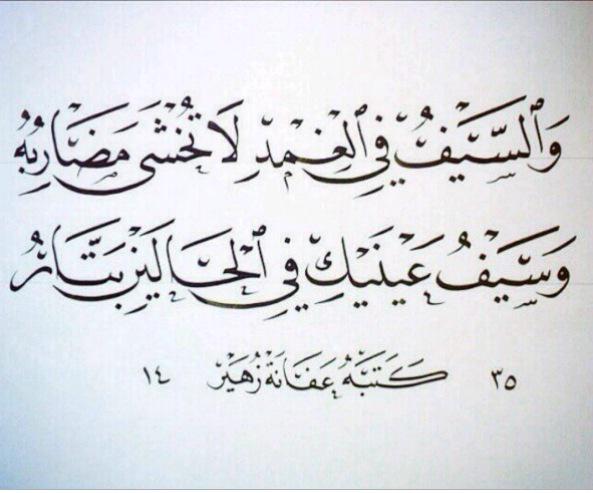 وَالسَّيْفُ فِي الْغِمْدِ لَا تُخْشَى مَضَارِبُهُ
وَسَيْفُ عَيْنَيْكِ فِي الْحَالَيْنِ بَتَّارُ
كَتَبَهُ عَفَانَة زُهَيْر ١٤٣٥